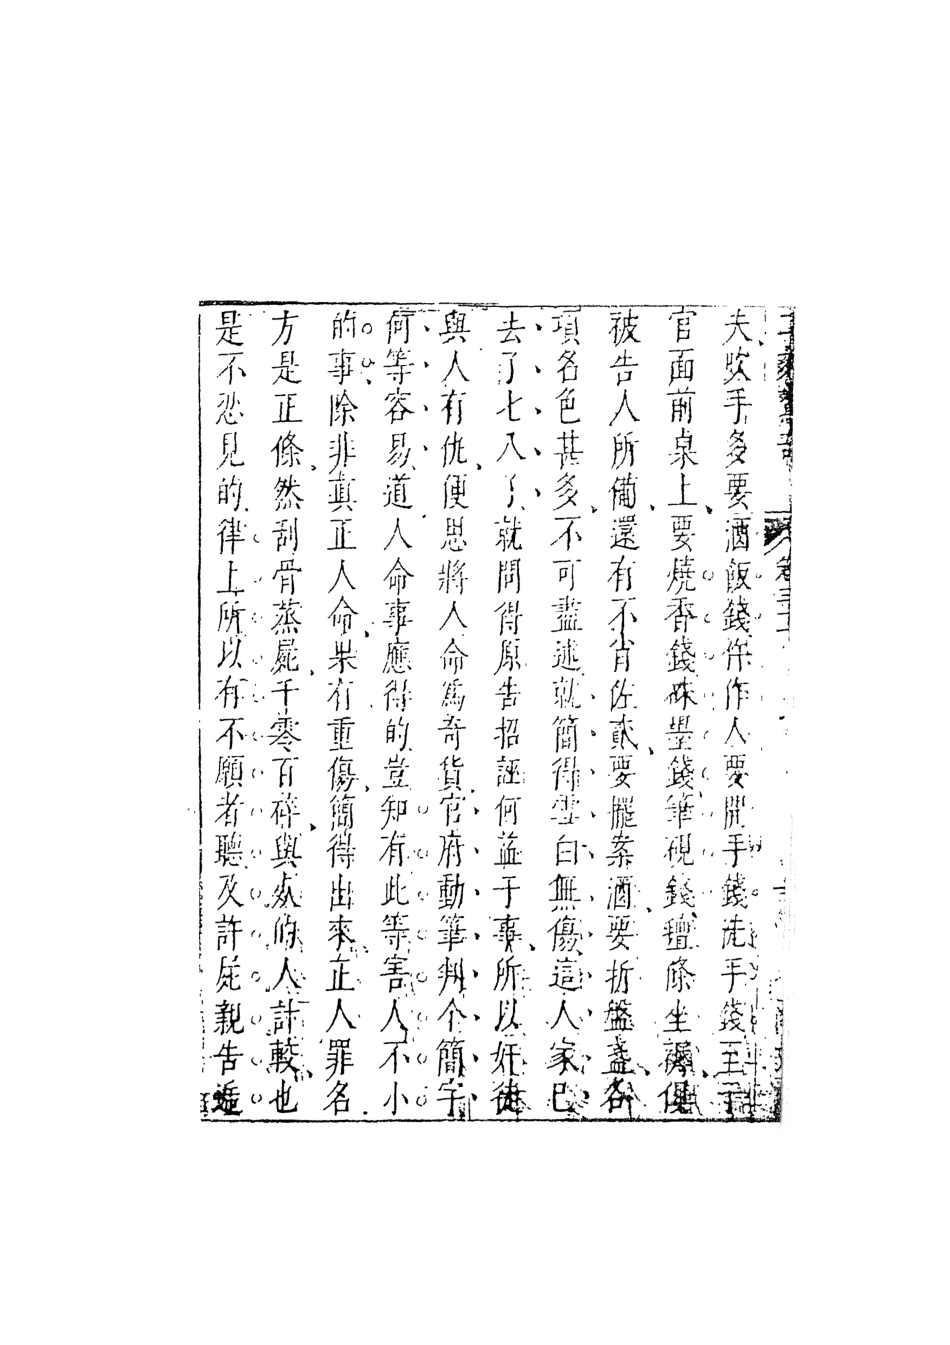 夫吹手多要酒飯錢仵作人要開手錢洗手錢至于
官面前桌上要燒香錢硃墨錢筆硯錢氊條坐褥俱
被告人所俻還有不肖佐貳要擺案酒要折盤盞各
項各色甚多不可盡述就簡得雪白無傷這人家已
去了七八了就問得原告招誣何益于事所以奸徒
與人有仇便思將人命爲奇貨官府動筆判个簡字
何等容易道人命事應得的豈知有此等害人不小
的事除非真正人命果有重傷簡得出來正人罪名
方是正條然刮骨蒸屍千零百碎與死的人計較也
是不忍見的律上所以有不願者聽及許屍親告遞